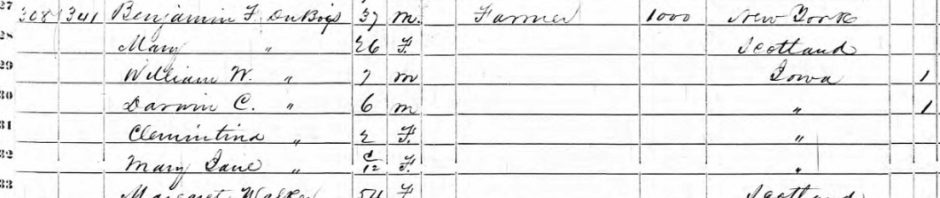 27 341 Benjamin F. DuBois 37 m. Farmer 1000 New York
28 Mary " 26 F. Scotland
29 William W. " 7 m Iowa 1
30 Darwin C. " 6 m " 1
31 Clemintina " 2 F. "
32 Mary Jane " /12 F. "
33 Margaret Walker 54 F Scotland